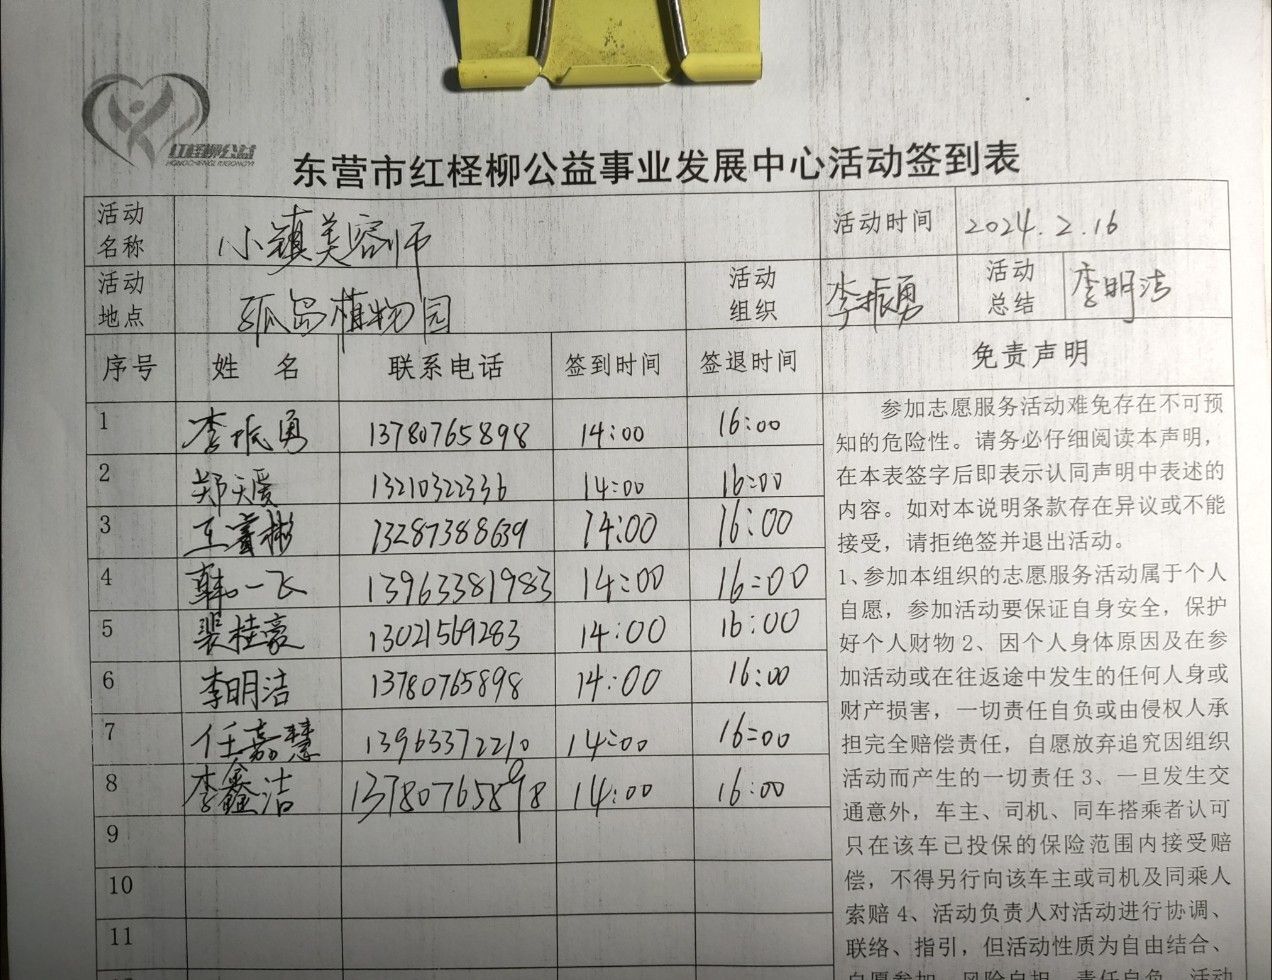 红柽柳公益
HONGCHENGLIUGONGYI
东营市红柽柳公益事业发展中心活动签到表
活动名称 小镇美容师 活动时间 2024.2.16
活动地点 孤岛植物园 活动组织 李振勇 活动总结 李明洁
序号 姓 名 联系电话 签到时间 签退时间 免责声明
1 李振勇 13780765898 14:00 16:00
2 郑天爱 13210322336 14:00 16:00
3 王睿彬 13287388639 14:00 16:00
4 韩一飞 13963381983 14:00 16:00
5 裴桂豪 13021569283 14:00 16:00
6 李明洁 13780765898 14:00 16:00
7 任嘉慧 13963372210 14:00 16:00
8 李鑫洁 13780765898 14:00 16:00
9
10
11
参加志愿服务活动难免存在不可预
知的危险性。请务必仔细阅读本声明，
在本表签字后即表示认同声明中表述的
内容。如对本说明条款存在异议或不能
接受，请拒绝签并退出活动。
1、参加本组织的志愿服务活动属于个人
自愿，参加活动要保证自身安全，保护
好个人财物2、因个人身体原因及在参
加活动或在往返途中发生的任何人身或
财产损害，一切责任自负或由侵权人承
担完全赔偿责任，自愿放弃追究因组织
活动而产生的一切责任3、一旦发生交
通意外，车主、司机、同车搭乘者认可
只在该车已投保的保险范围内接受赔
偿，不得另行向该车主或司机及同乘人
索赔4、活动负责人对活动进行协调、
联络、指引，但活动性质为自由结合、
自愿参加、风险自担、责任自负。活动